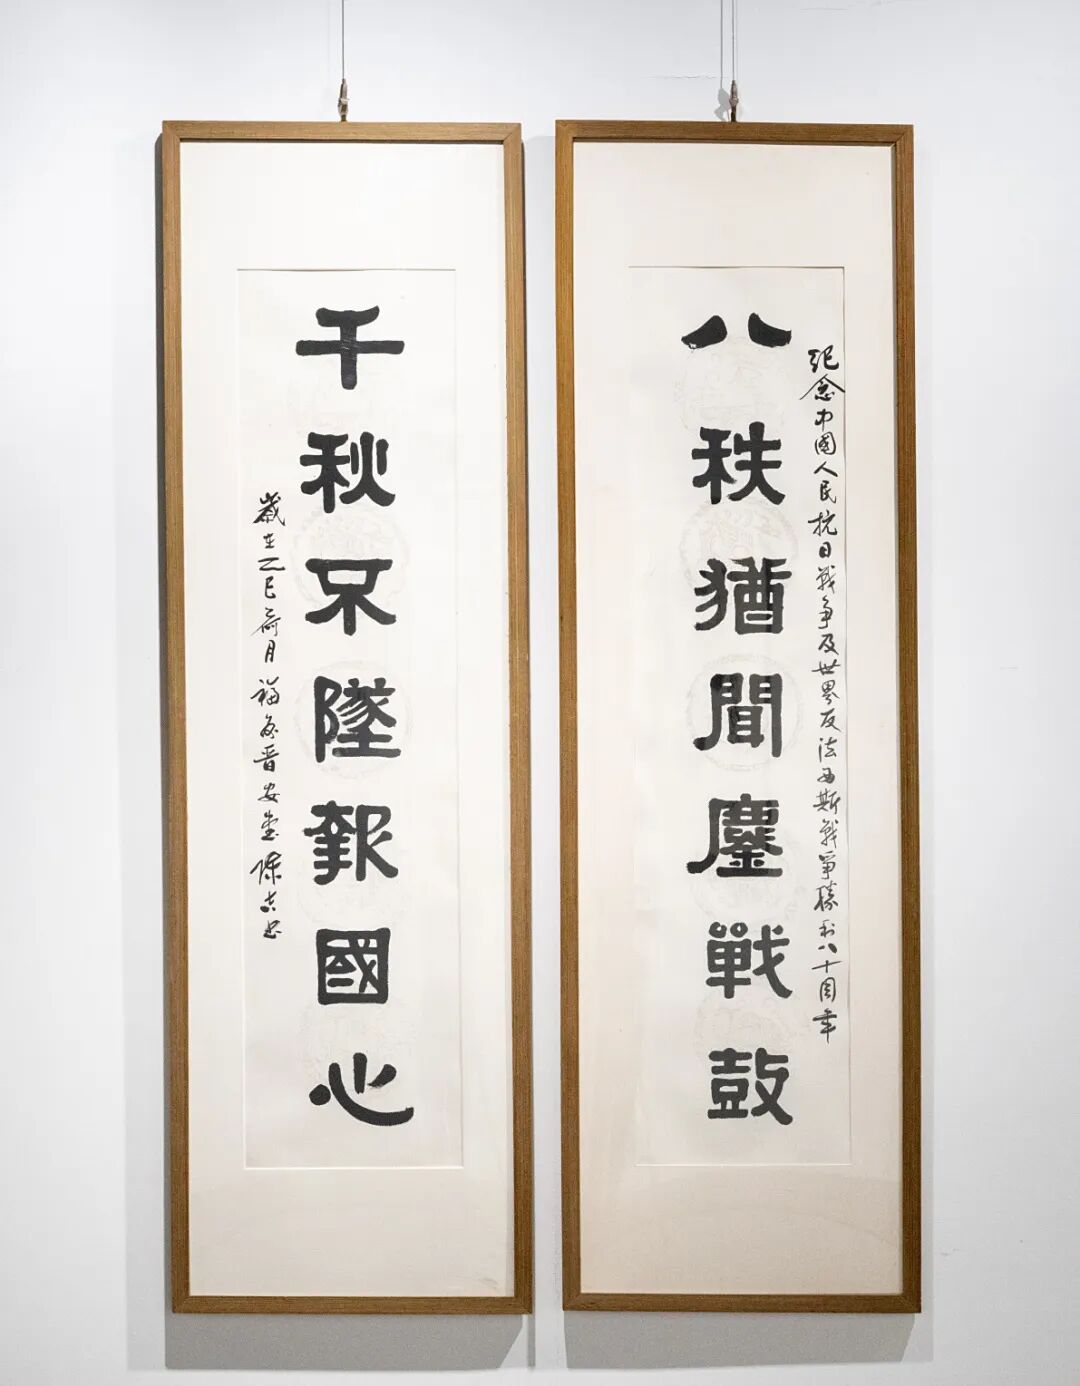 紀念中國人民抗日戰争及世界反法西斯戰爭勝利八十周年
八秩猶聞鏖戰鼓
千秋不墜報國心
歲在乙巳荷月福晋安堂陳吉书